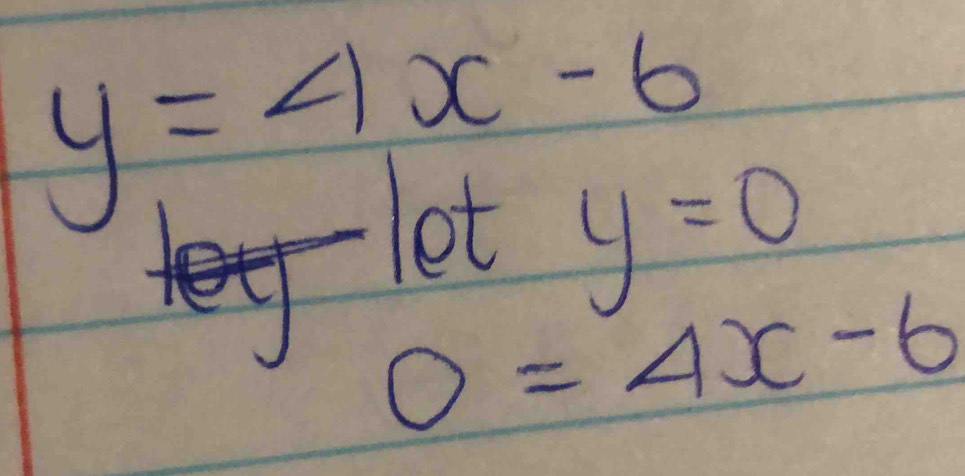 y = 4x - 6
let y = 0
0 = 4x - 6